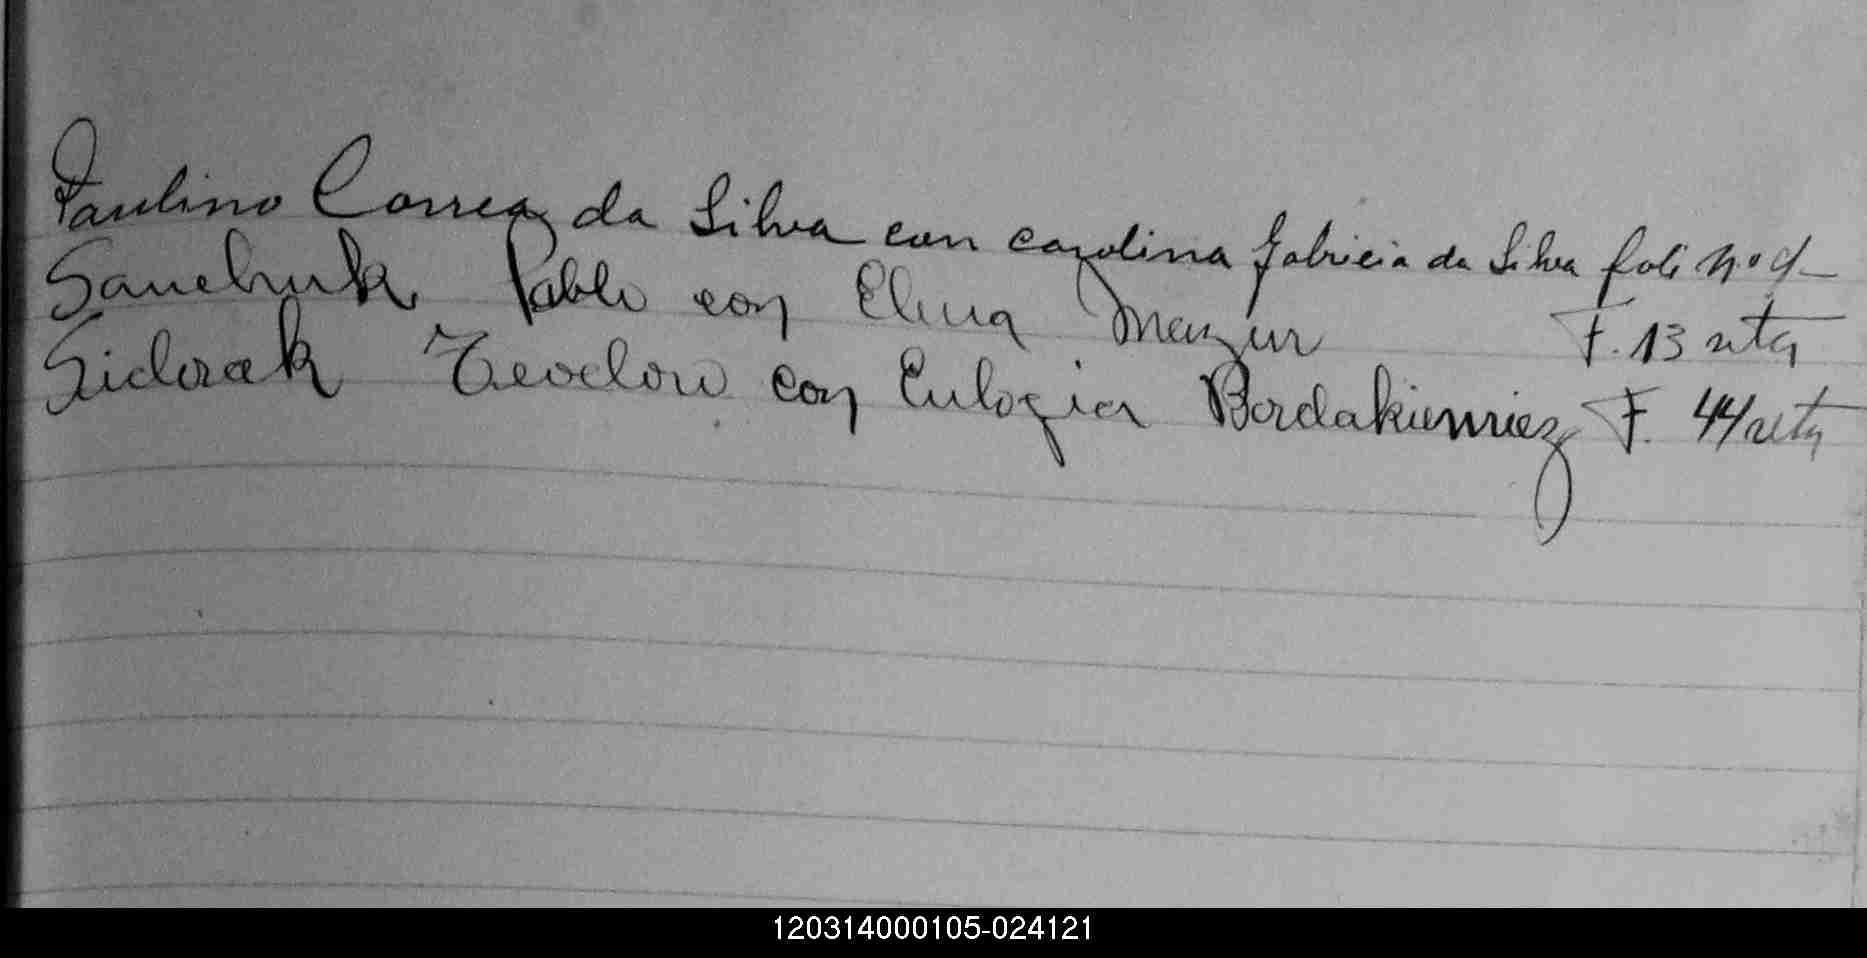 Paulino Correa da Silva con carolina fabricia da Silva foli Nº 9
Sanchuk Pablo con Elena Mazur F. 13 vta
Sidorak Teodoro con Eulogia Bordakienviez F. 44 vta
120314000105-024121